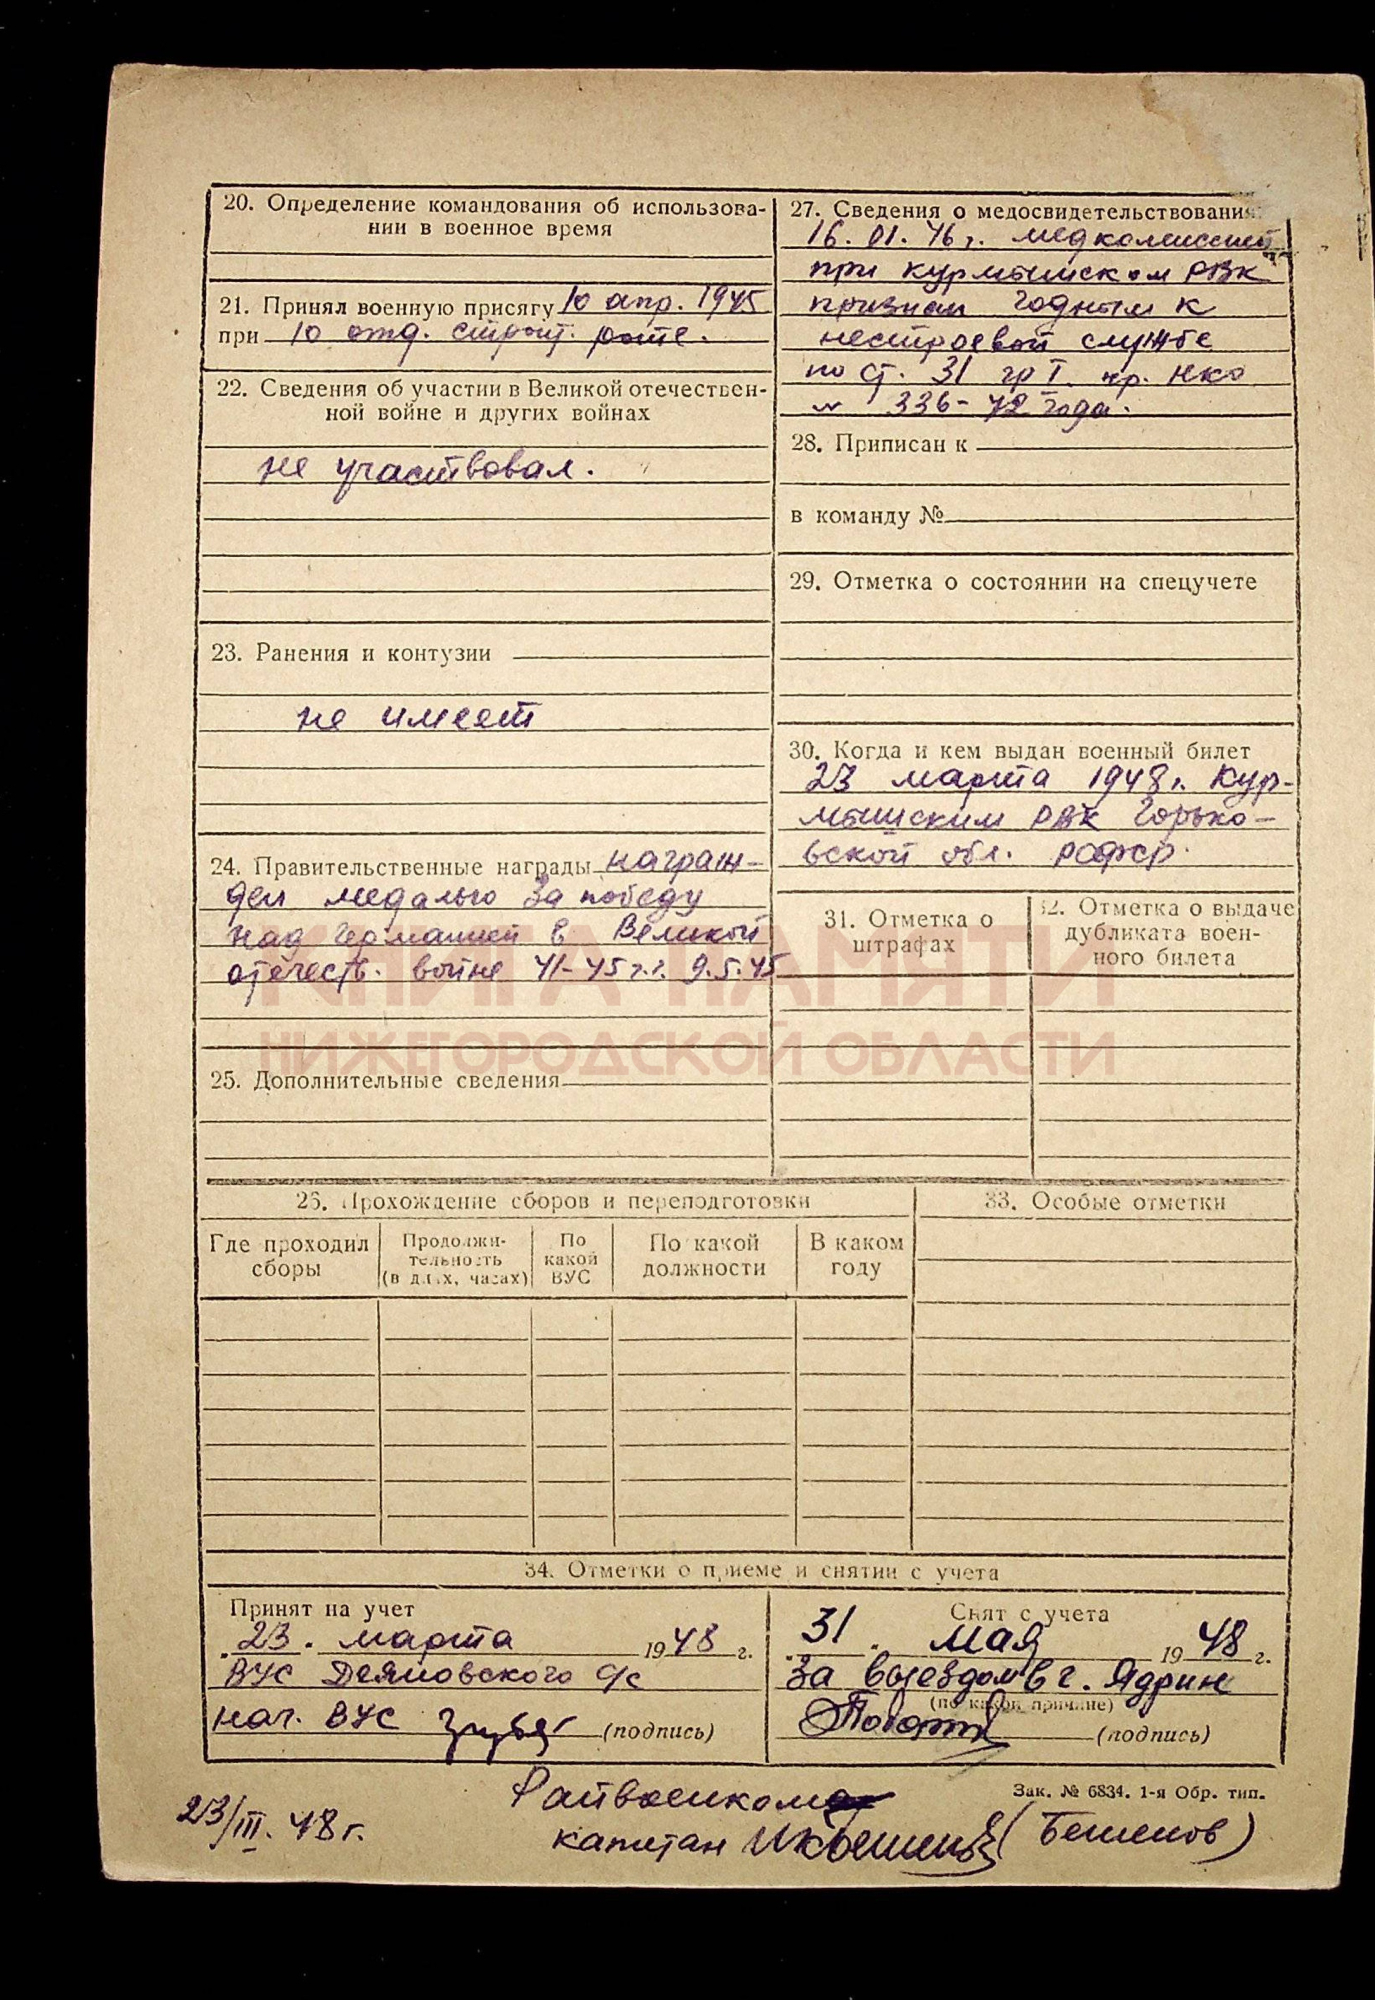 20. Определение командования об использова-
нии в военное время
21. Принял военную присягу 10 апр. 1945
при 10 отд. строит. роте.
22. Сведения об участии в Великой отечествен-
ной войне и других войнах
не участвовал.
23. Ранения и контузии
не имеет
24. Правительственные награды награж-
ден медалью За победу
над Германией в Великой
отечеств. войне 41-45 г.г. 9.5.45
25. Дополнительные сведения
27. Сведения о медосвидетельствовании:
16.01.46 г. медкомиссией
при Курмышском РВК
признан годным к
нестроевой службе
по ст. 31 гр I. пр. НКО
№ 336-42 года.
28. Приписан к
в команду №
29. Отметка о состоянии на спецучете
30. Когда и кем выдан военный билет
23 марта 1948 г. Кур-
мышским РВК Горько-
вской обл. РСФСР.
31. Отметка о
штрафах
32. Отметка о выдаче
дубликата воен-
ного билета
КНИГА ПАМЯТИ
НИЖЕГОРОДСКОЙ ОБЛАСТИ
26. Прохождение сборов и переподготовки
Где проходил
сборы
Продолжи-
тельность
(в днях, часах)
По
какой
ВУС
По какой
должности
В каком
году
33. Особые отметки
34. Отметки о приеме и снятии с учета
Принят на учет
23. марта 1948 г.
ВУС Деяновского с/с
нач. ВУС (подпись)
Снят с учета
31. мая 1948 г.
За выездом в г. Ядрин
(по какой причине)
(подпись)
Зак. № 6834. 1-я Обр. тип.
23/III. 48 г.
Райвоенком
капитан (Бешенов)